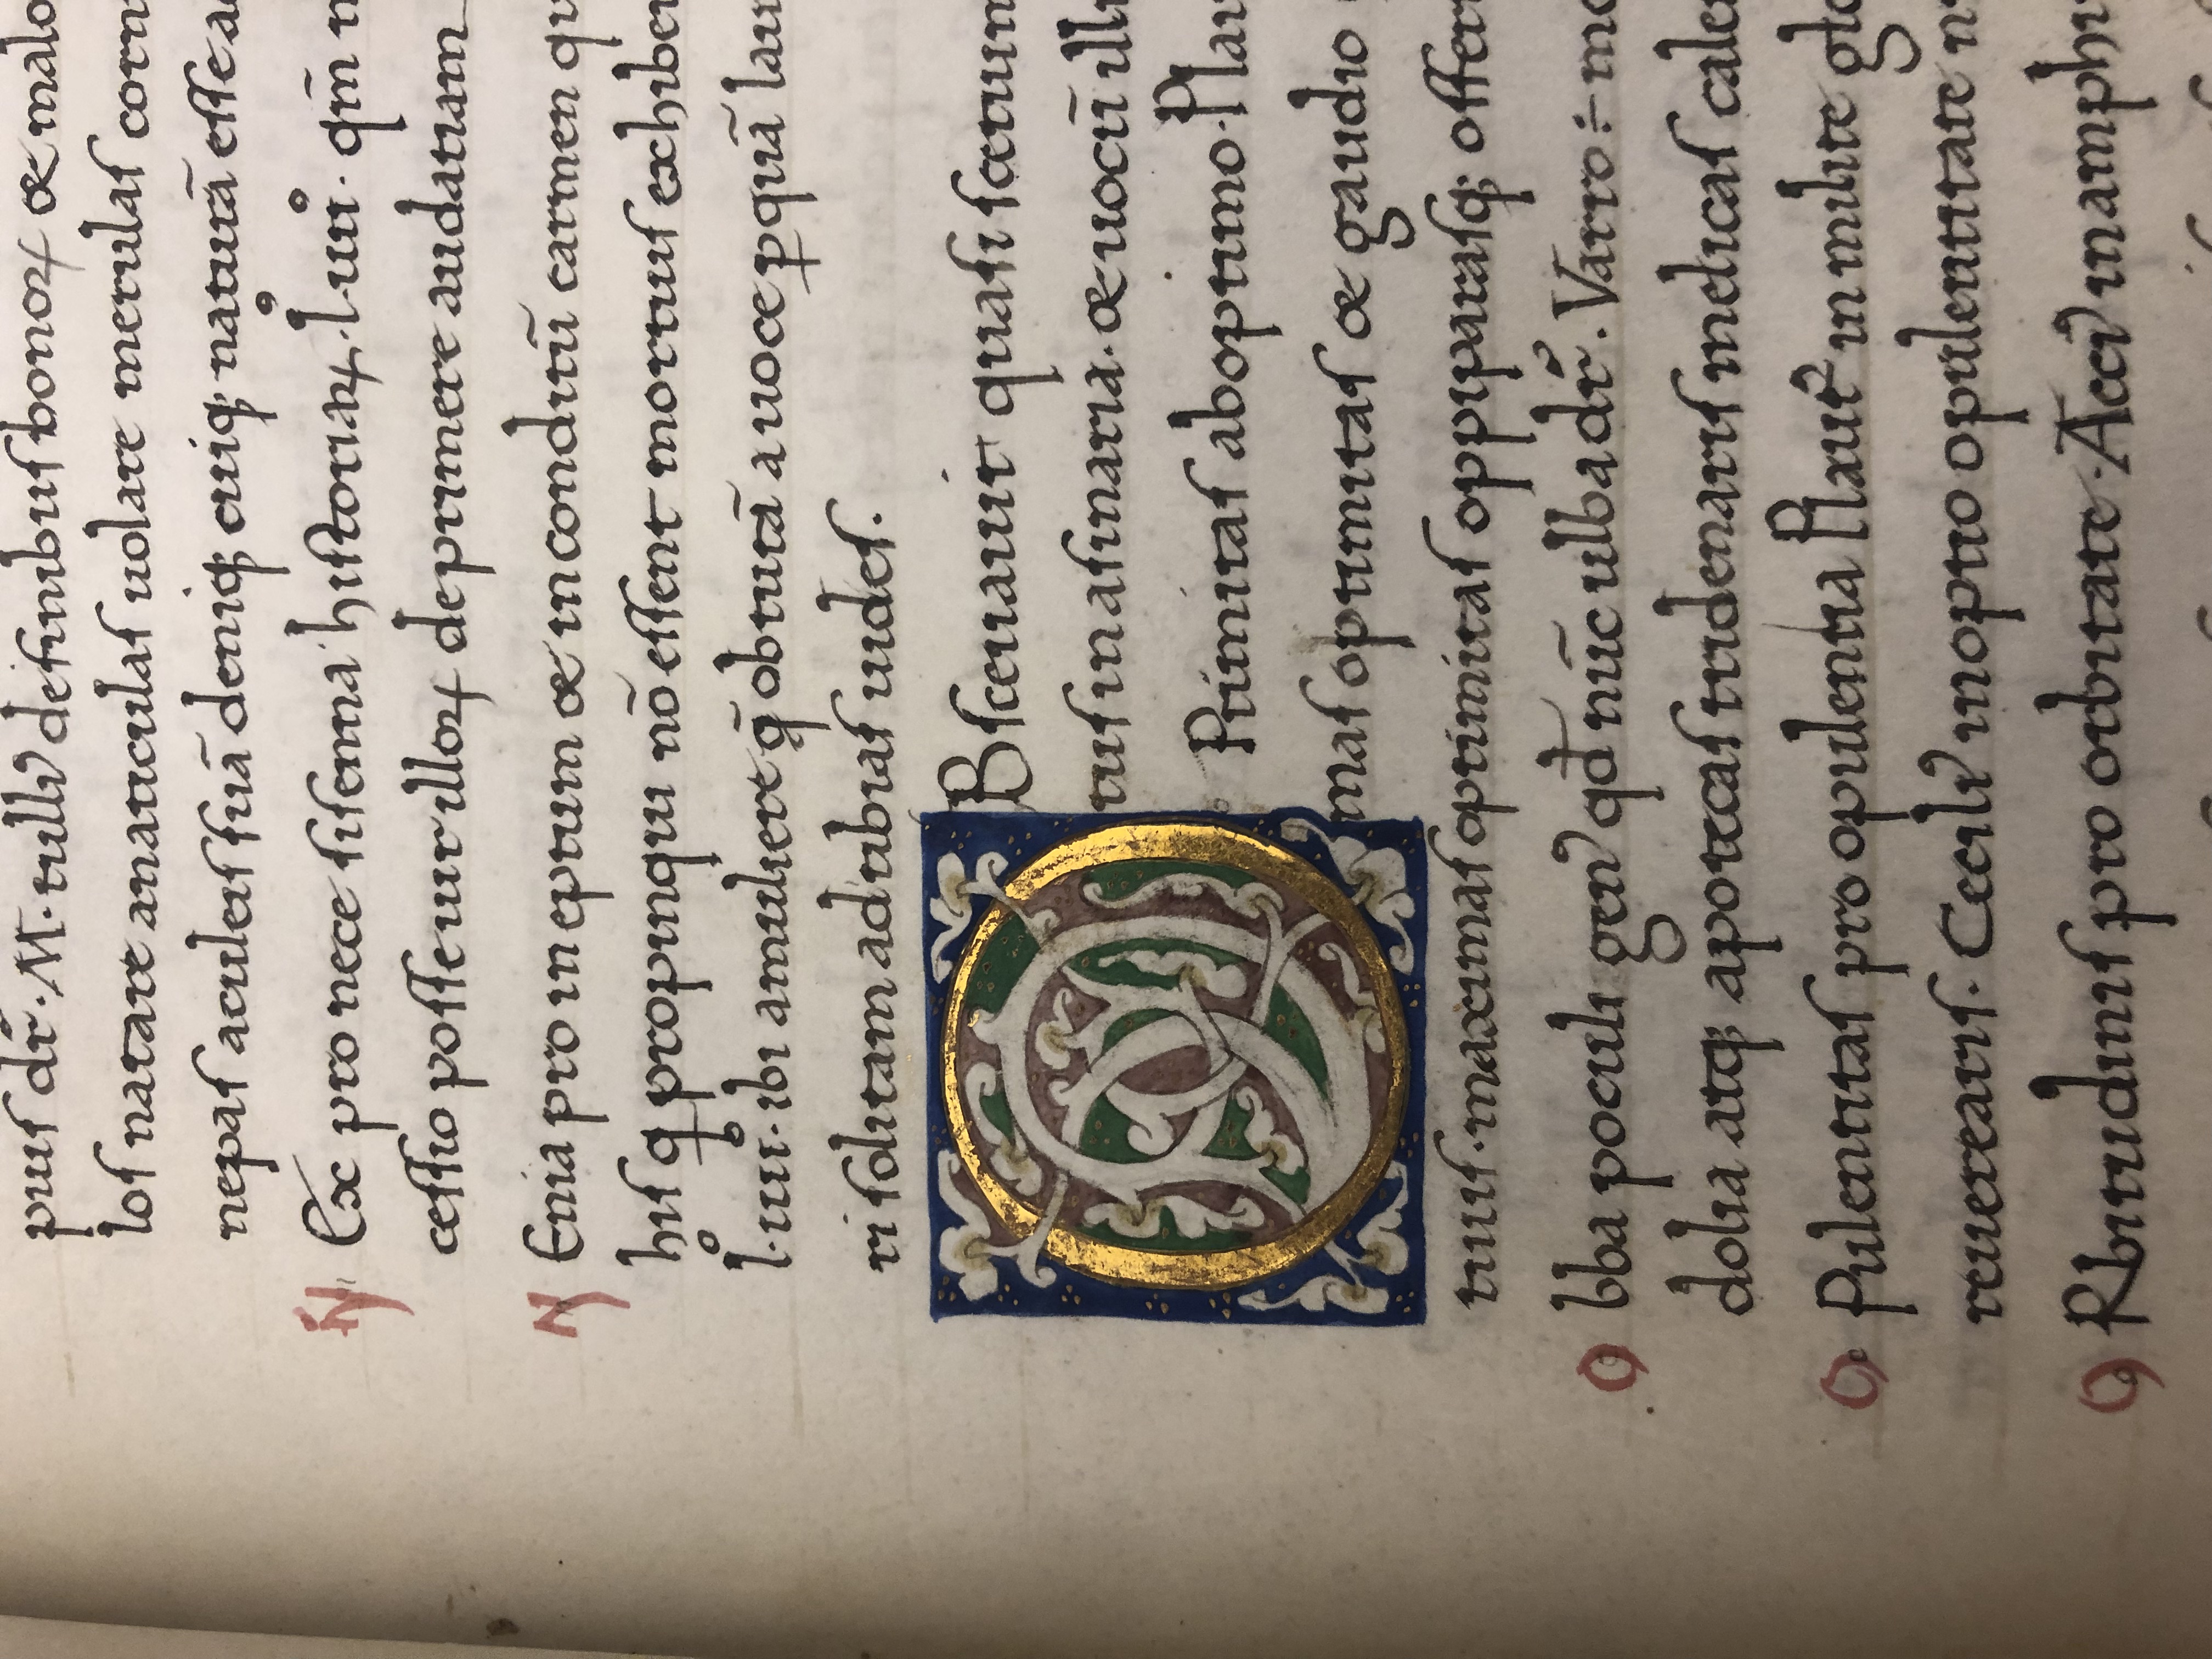 pius dr̄. M. tulliꝰ de finibus bonoꝝ & malo
los natare anaticulas uolare merulas corn
nepas aculeis suā deniq; cuiq; naturā esse ad
N Ex pro nece sisenna historiaꝝ .l. iiii. qm̄ n
cessio posse uir illoꝝ deprimere audatiam
N Enia pro ineptum & inconditū carmen qu
his ꝗ propinqui nō essent mortuis exhiber
l. iiii. ibi a muliere q̄ obtutā a uoce ꝑ quā lau
ri solitam ad tibias uides.
O Bsceauit quasi scæuum
tus in asinaria. & uocū illi
Primitas ab optimo. Plau
mas optimitas & gaudio
tuis. maximas opimitas oppiparasq; offer
O bba poculi genꝰ qd̄ nūc ulba dr̄. Varro ÷ mo
dolia atq; apotecas tridenaris melicas calen
O Pulentitas pro opulentia Plautꝰ in milite glo
reuerearis. Ceciliꝰ inoptio opulentitate n
O Rbitudinis pro orbitate. Acciꝰ in amphi